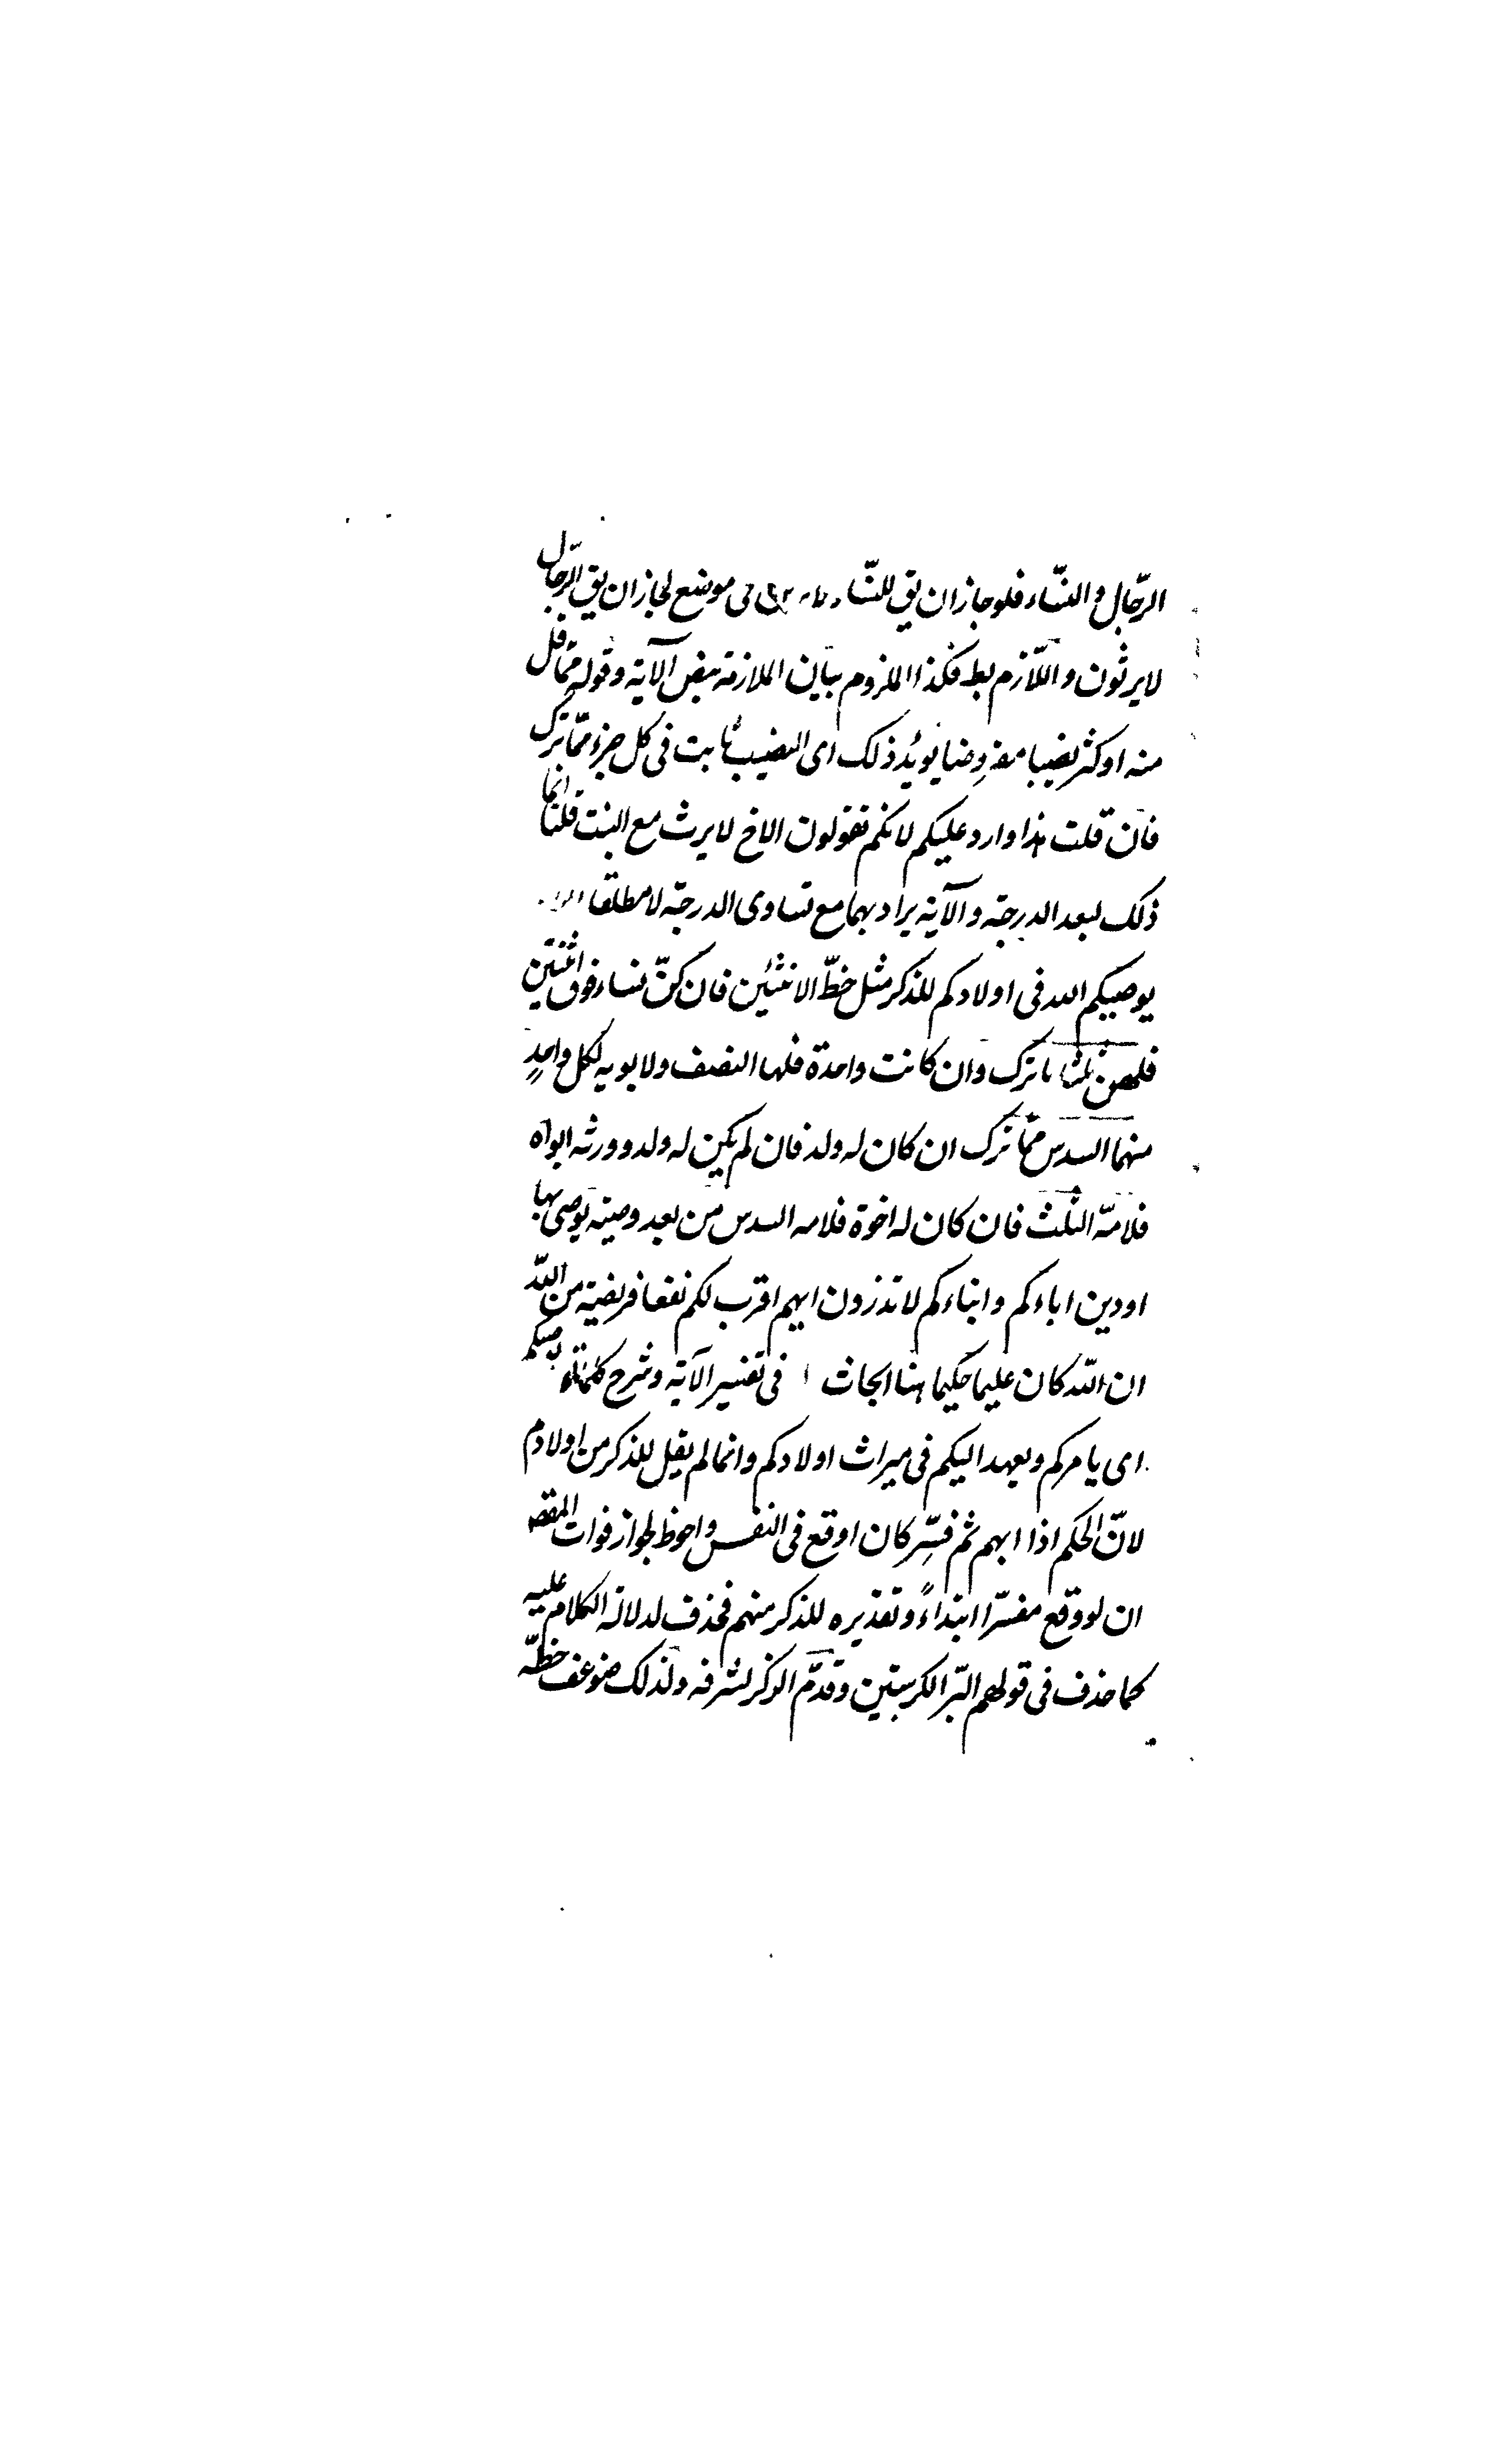 الرّجال والنسّاء فلو جاز ان يق للنسّاء لا يرثن فى موضع لجاز ان يق الرّجال
لا يرثون واللّازم بط فكذا الملزوم بيان الملازمة بنص الآية وقوله ممّا قل
منه او كثر نصيبا مفروضا يؤيد ذلك اى النصيب ثابت فى كل جزء ممّا ترك
فان قلت هذا وارد عليكم لانكم تقولون الاخ لا يرث مع البنت قلنا انّما
ذلك لبعد الدرجة والآية يراد بهما مع تساوى الدرجة لا مطلقا
يوصيكم الله فى اولادكم للذكر مثل حظّ الانثيين فان كنّ نساء فوق اثنتين
فلهن ثلثا ما ترك وان كانت واحدة فلها النصف ولابويه لكل واحدٍ
منهما السدس ممّا ترك ان كان له ولد فان لم يكن له ولد وورثه ابواه
فلامّه الثلث فان كان له اخوة فلامه السدس من بعد وصية يوصى بها
او دين اباءكم وابناءكم لا تدرون ايهم اقرب لكم نفعا فريضة من اللّه
ان اللّه كان عليما حكيما هنا ابحاث ١ فى تفسير الآية وشرح كلماتها يوصيكم
اى يامركم ويعهد اليكم فى ميراث اولادكم وانما لم يقل للذكر من اولادكم
لانّ الحكم اذا ابهم ثم فسّر كان اوقع فى النفس واحوظ لجواز فوات المقصد
ان لو وقع مفسّرا ابتداءً وتقديره للذكر منهم فحذف لدلالة الكلام عليه
كما حذف فى قولهم البّر الكر بستين وقدّم الذكر لشرفه ولذلك ضوعف حظّه